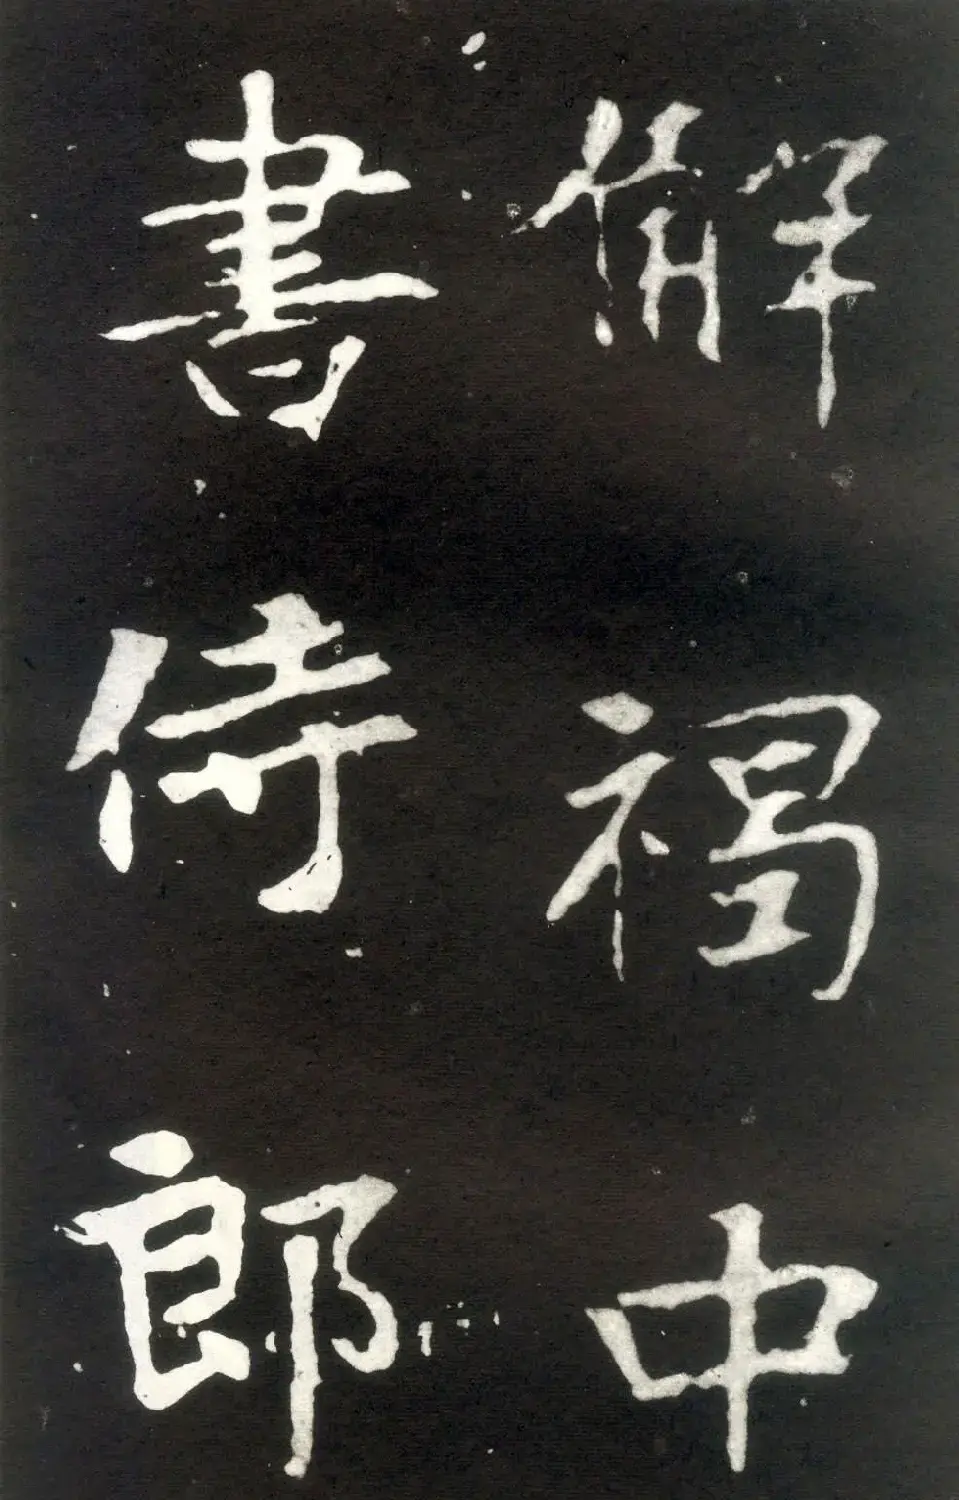 解褐中
書侍郎